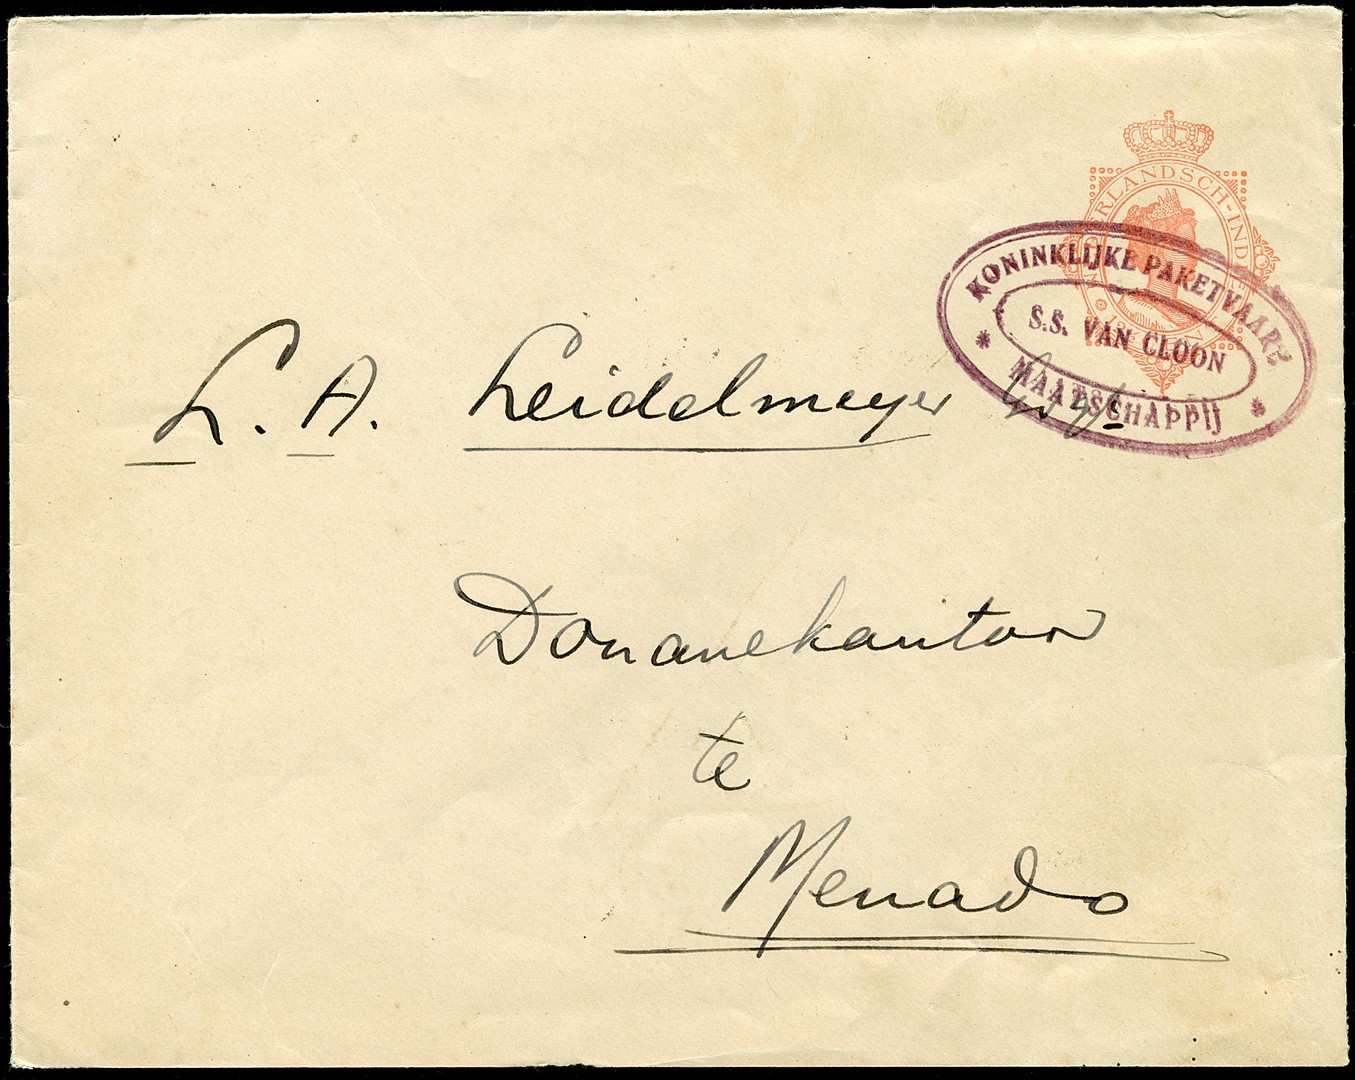 NEDERLANDSCH-INDIË
KONINKLIJKE PAKETVAART
S.S. VAN CLOON
MAATSCHAPPIJ
L. A. Leidelmeyer
Douanekantoor
te
Menado